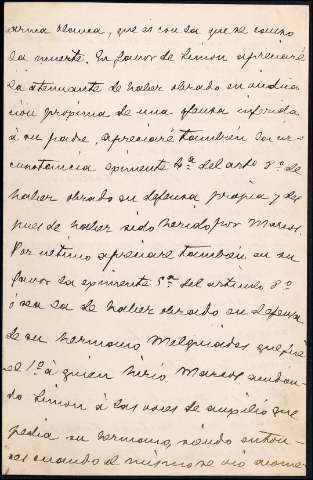 arma blanca, que es con la que se causó
la muerte. En favor de Simon apreciaré
la atenuante de haber obrado en vindica
ción próxima de una ofensa inferida
á su padre. Apreciaré tambien la cir-
cunstancia eximente 4ª del artº 8º de
haber obrado en defensa propia y des
pues de haber sido herido por Marcos.
Por ultimo apreciaré tambien en su
favor la eximente 5ª del articulo 8º
ó sea la de haber obrado en defensa
de su hermano Melquiades que fué
el 1º á quien hirió Marcos acudien
do Simon á las voces de auxilio que
pedia su hermano, siendo enton-
ces cuando el mismo se vió acome-